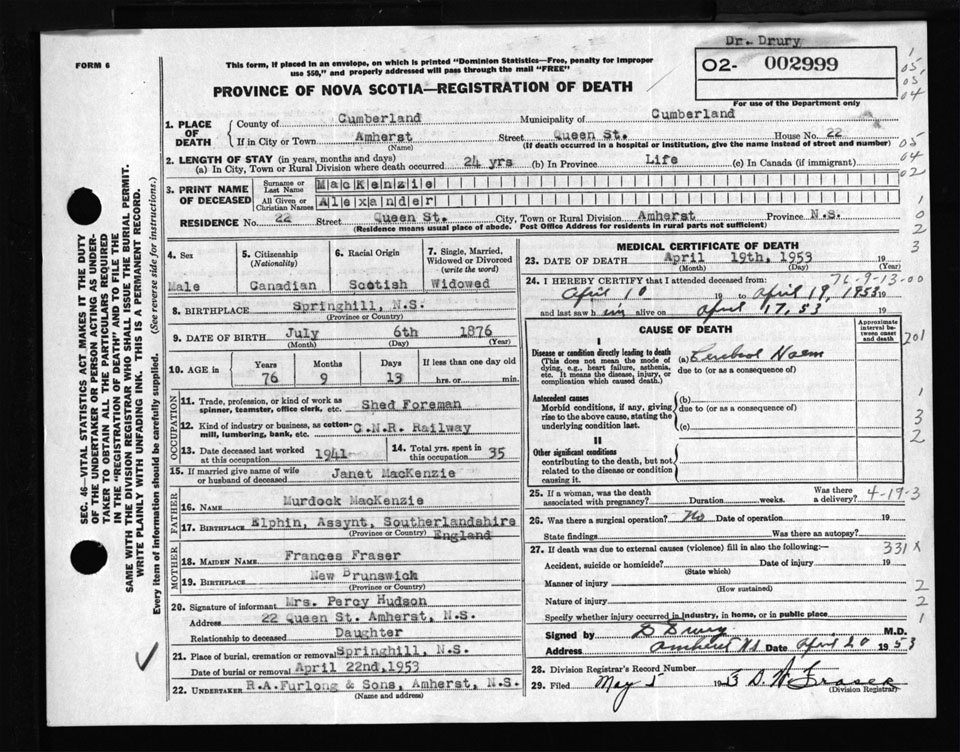 Dr. Drury
FORM 6
This form, if placed in an envelope, on which is printed "Dominion Statistics—Free, penalty for improper
use $50," and properly addressed will pass through the mail "FREE"
02- 002999
For use of the Department only
PROVINCE OF NOVA SCOTIA—REGISTRATION OF DEATH
SEC. 46—VITAL STATISTICS ACT MAKES IT THE DUTY
OF THE UNDERTAKER OR PERSON ACTING AS UNDER-
TAKER TO OBTAIN ALL THE PARTICULARS REQUIRED
IN THE "REGISTRATION OF DEATH" AND TO FILE THE
SAME WITH THE DIVISION REGISTRAR WHO SHALL ISSUE THE BURIAL PERMIT.
WRITE PLAINLY WITH UNFADING INK. THIS IS A PERMANENT RECORD.
Every item of information should be carefully supplied. (See reverse side for instructions.)
1. PLACE OF DEATH
County of Cumberland Municipality of Cumberland
If in City or Town Amherst Street Queen St. House No. 22
(Name) (If death occurred in a hospital or institution, give the name instead of street and number)
2. LENGTH OF STAY (in years, months and days)
(a) In City, Town or Rural Division where death occurred 24 yrs (b) In Province Life (c) In Canada (if immigrant)
3. PRINT NAME OF DECEASED
Surname or Last Name MacKenzie
All Given or Christian Names Alexander
RESIDENCE No. 22 Street Queen St. City, Town or Rural Division Amherst Province N.S.
(Residence means usual place of abode. Post Office Address for residents in rural parts not sufficient)
4. Sex
Male
5. Citizenship (Nationality)
Canadian
6. Racial Origin
Scotish
7. Single, Married, Widowed or Divorced (write the word)
Widowed
8. BIRTHPLACE Springhill, N.S.
(Province or Country)
9. DATE OF BIRTH July 6th 1876
(Month) (Day) (Year)
10. AGE in Years Months Days If less than one day old
76 9 13 hrs. or min.
OCCUPATION
11. Trade, profession, or kind of work as
spinner, teamster, office clerk, etc. Shed Foreman
12. Kind of industry or business, as cotton-
mill, lumbering, bank, etc. C.N.R. Railway
13. Date deceased last worked
at this occupation 1941
14. Total yrs. spent in
this occupation 35
15. If married give name of wife
or husband of deceased Janet MacKenzie
FATHER
16. NAME Murdock MacKenzie
17. BIRTHPLACE Elphin, Assynt, Southerlandshire
(Province or Country) England
MOTHER
18. MAIDEN NAME Frances Fraser
19. BIRTHPLACE New Brunswick
(Province or Country)
20. Signature of informant Mrs. Percy Hudson
Address 22 Queen St. Amherst, N.S.
Relationship to deceased Daughter
21. Place of burial, cremation or removal Springhill, N.S.
Date of burial or removal April 22nd,1953
22. UNDERTAKER R.A.Furlong & Sons, Amherst, N.S.
(Name and address)
MEDICAL CERTIFICATE OF DEATH
23. DATE OF DEATH April 19th, 1953 19
(Month) (Day) (Year)
76-9-13-00
24. I HEREBY CERTIFY that I attended deceased from:
April 10 19 to April 19, 1953 19
and last saw h im alive on April 17, 53
CAUSE OF DEATH
Approximate interval between onset and death
I
Disease or condition directly leading to death
(This does not mean the mode of
dying, e.g., heart failure, asthenia,
etc. It means the disease, injury, or
complication which caused death.)
(a) Cerebral Haem
due to (or as a consequence of)
Antecedent causes
Morbid conditions, if any, giving
rise to the above cause, stating the
underlying condition last.
(b)
due to (or as a consequence of)
(c)
II
Other significant conditions
contributing to the death, but not
related to the disease or condition
causing it.
25. If a woman, was the death
associated with pregnancy? Duration weeks. Was there a delivery? 4-19-3
26. Was there a surgical operation? No Date of operation 19
State findings Was there an autopsy?
27. If death was due to external causes (violence) fill in also the following:— 331 X
Accident, suicide or homicide? Date of injury 19
(State which)
Manner of injury
(How sustained)
Nature of injury
Specify whether injury occurred in industry, in home, or in public place
Signed by D Drury M.D.
Address Amherst NS Date April 20 1953
28. Division Registrar's Record Number
29. Filed May 5 1953 D. W. Fraser
(Division Registrar)
1
05
03
04
05
04
02
1
0
2
3
201
1
3
2
2
2
1